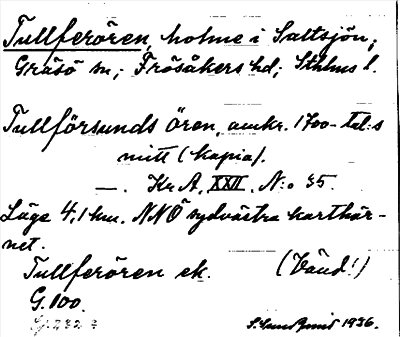 Tullferören, holme i Saltsjön;
Gräsö sn; Frösåkers hd; Sthlms l.
Tullförsunds ören, omkr. 1700-tal:s
mitt (kopia).
—. Kr A, XXII, N:o 35.
Läge 4,1 km. NNÖ sydvästra karthör-
net.
Tullferören ek. (Vänd!)
G. 100.
1936.